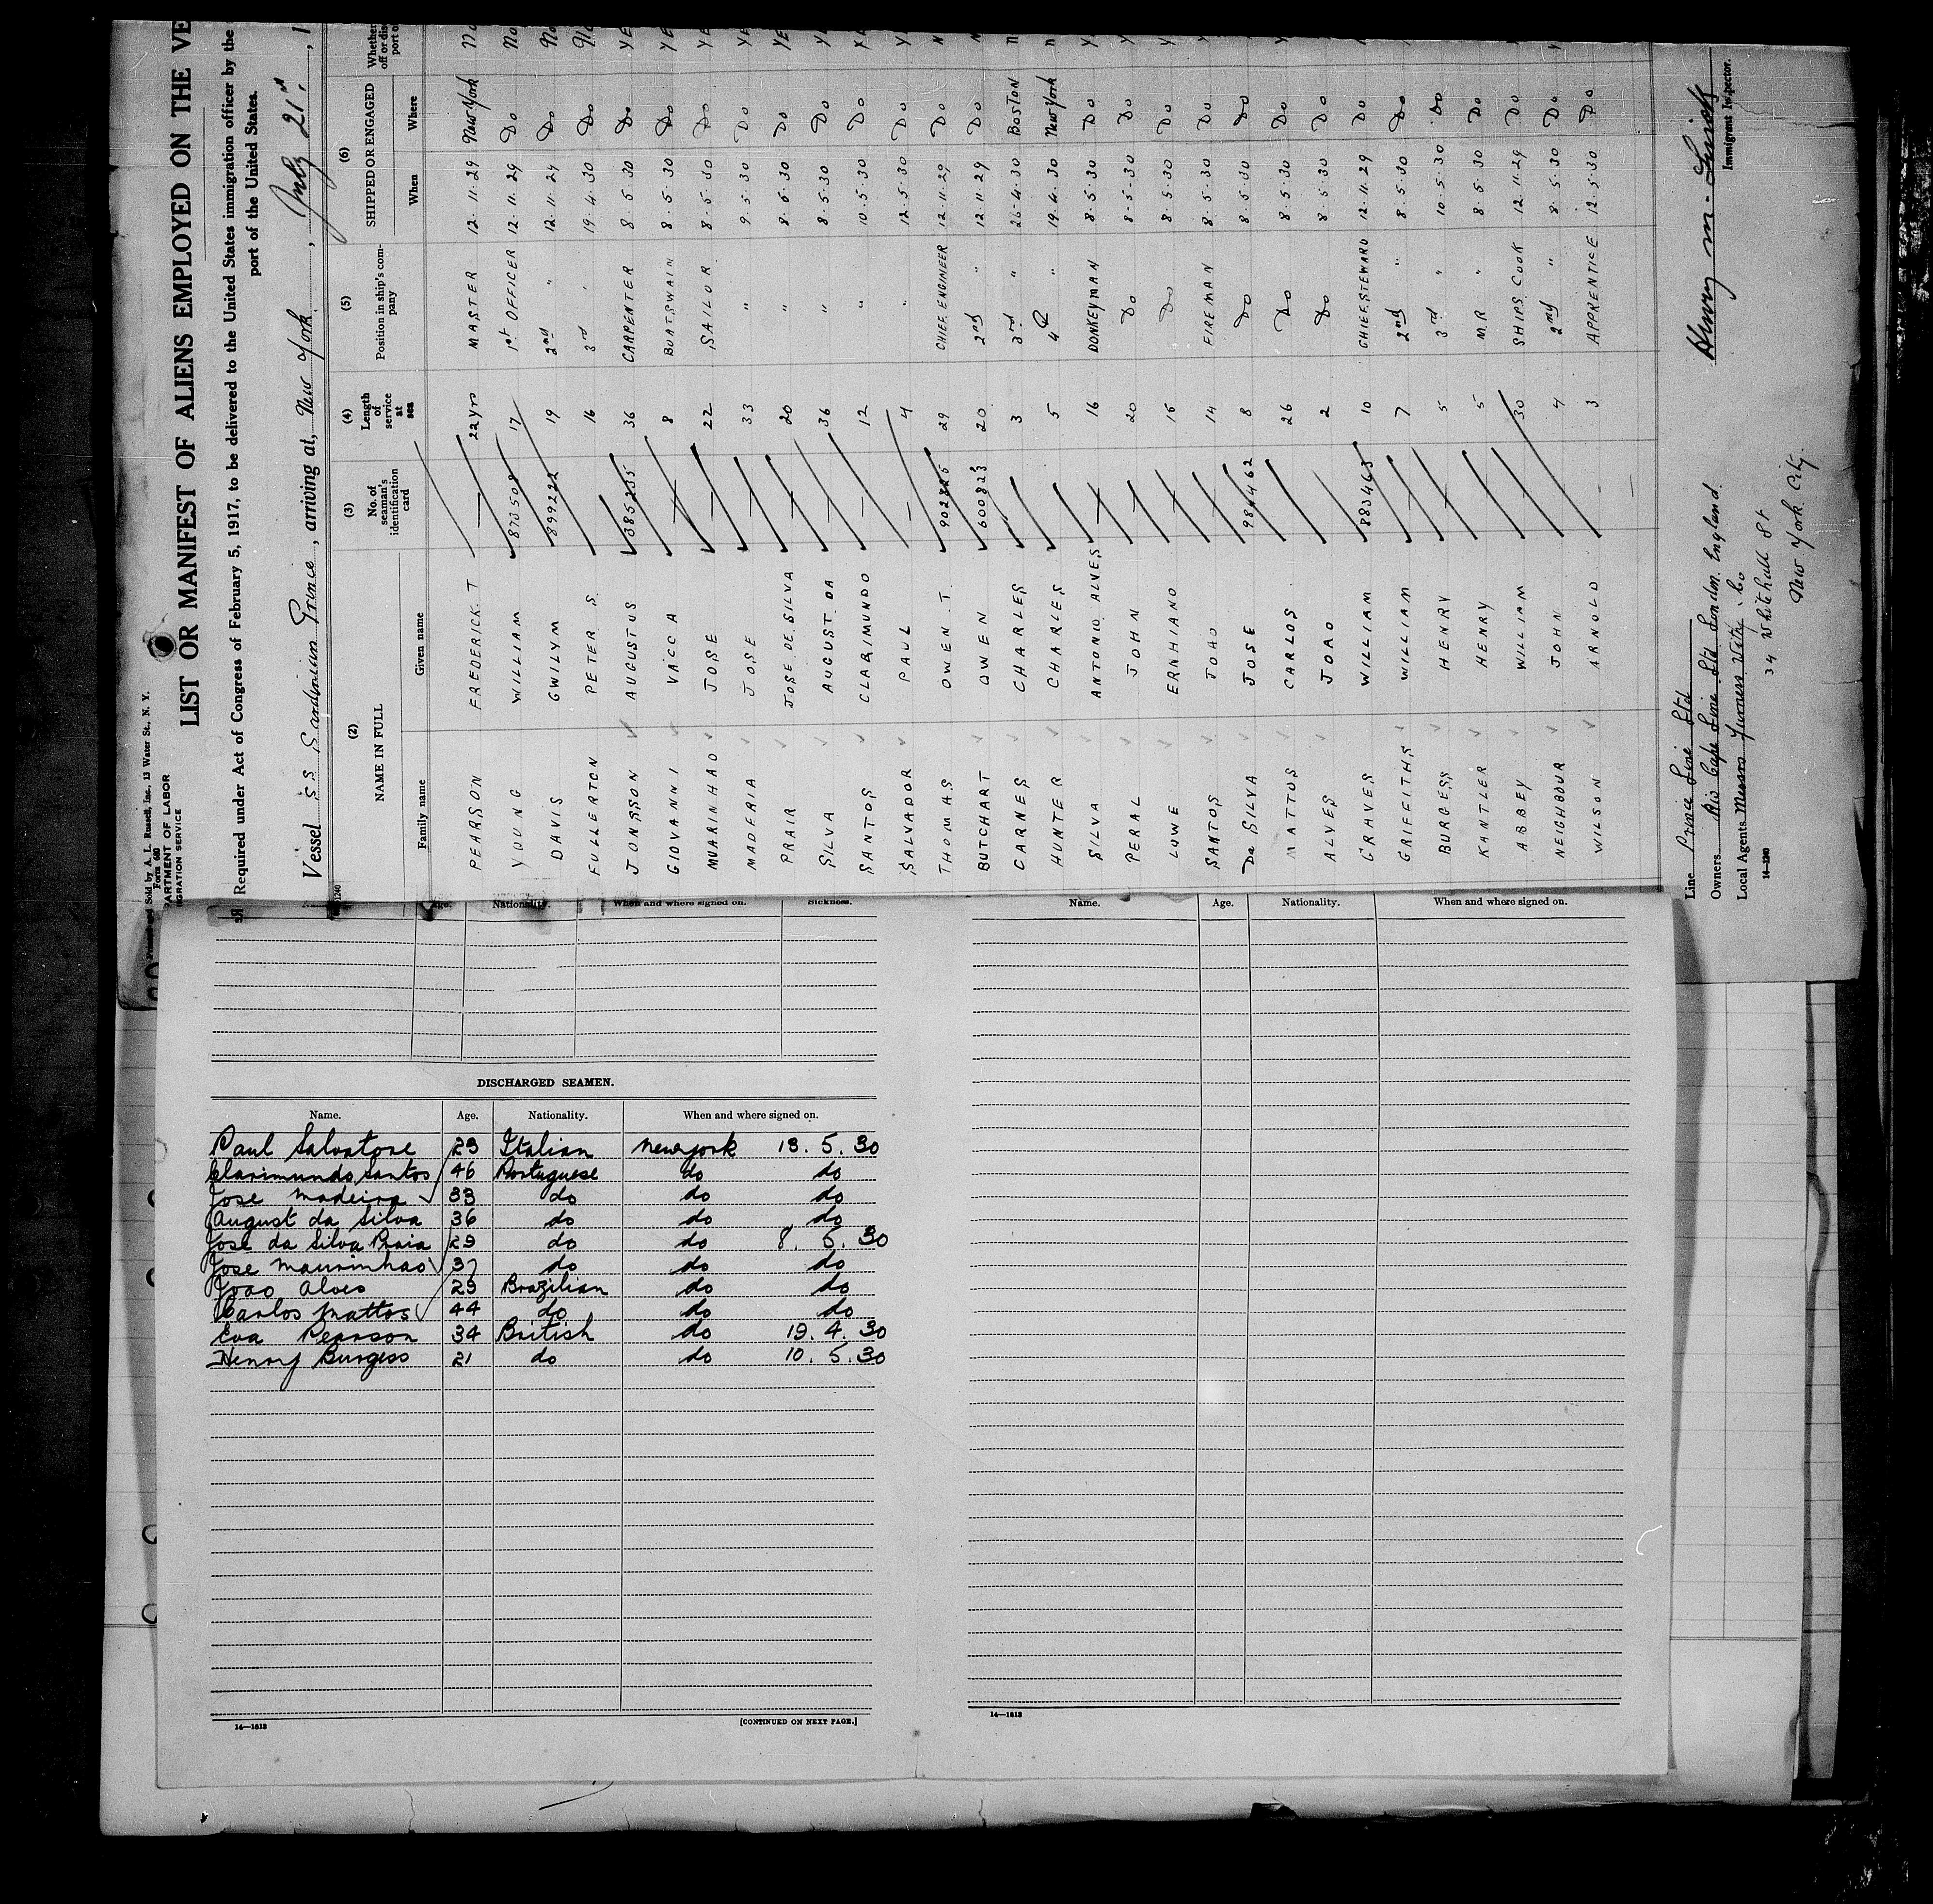 Sold by A. L. Russell, Inc., 13 Water St., N. Y.
Form 680
DEPARTMENT OF LABOR
IMMIGRATION SERVICE
LIST OR MANIFEST OF ALIENS EMPLOYED ON THE VE
Required under Act of Congress of February 5, 1917, to be delivered to the United States immigration officer by the
port of the United States.
Vessel SS Sardinian Prince, arriving at, New York, July 21st, 1
(2) NAME IN FULL (3) No. of seaman's identification card (4) Length of service at sea (5) Position in ship's company (6) SHIPPED OR ENGAGED Whether
Family name Given name When Where
PEARSON FREDERICK. T — 22 yrs MASTER 12.11.29 New York No
YOUNG WILLIAM 17 1st OFFICER 12.11.29 Do No
DAVIS GWILYM 899222 19 2nd " 12.11.29 Do No
FULLERTON PETER S. 16 3rd " 19.4.30 Do No
JONSSON AUGUSTUS 385235 36 CARPENTER 8.5.30 Do YE
GIOVANNI VACCA — 8 BOATSWAIN 8.5.30 Do YE
MUARINHAO JOSE — 22 SAILOR 8.5.30 Do YE
MADERIA JOSE — 33 " 9.5.30 Do YE
PRAIR JOSE DE SILVA — 20 " 8.5.30 Do YE
SILVA AUGUST. DA — 36 " 8.5.30 Do YE
SANTOS CLARIMUNDO — 12 " 10.5.30 Do YE
SALVADOR PAUL — 4 " 12.5.30 Do Y
THOMAS OWEN. T. 29 CHIEF. ENGINEER 12.11.29 Do N
BUTCHART OWEN 600823 20 2nd " 12.11.29 Do N
CARNES CHARLES 3 3rd " 26.4.30 BOSTON N
HUNTER CHARLES 5 4th " 19.4.30 New York N
SILVA ANTONIO ALVES — 16 DONKEYMAN 8.5.30 Do Y
PERAL JOHN — 20 Do 8.5.30 Do Y
LOWE ERNHIANO — 15 Do 8.5.30 Do Y
SANTOS JOAO — 14 FIREMAN 8.5.30 Do Y
Da SILVA JOSE 984462 8 Do 8.5.30 Do Y
MATTOS CARLOS 26 Do 8.5.30 Do Y
ALVES JOAO 2 Do 8.5.30 Do Y
GRAVES WILLIAM 883463 10 CHIEF. STEWARD 12.11.29 Do
GRIFFITHS WILLIAM — 7 2nd " 8.5.30 Do
BURGESS HENRY — 5 3rd " 10.5.30 Do
KANTLER HENRY — 5 M.R. " 8.5.30 Do
ABBEY WILLIAM 30 SHIPS COOK 12.11.29 Do
NEIGHBOUR JOHN 4 2nd " 8.5.30 Do
WILSON ARNOLD 3 APPRENTICE 12.5.30 Do
Line Prince Line Ltd
Owners Rio Cape Line Ltd London. England
Local Agents Messrs Furness Withy & Co
34 Whitehall St
New York City.
14—1240
Immigrant Inspector.
Age. Nationality. When and where signed on. Sickness.
DISCHARGED SEAMEN.
Name. Age. Nationality. When and where signed on.
Paul Salvatore 23 Italian New York 13. 5. 30
Clarimundo Santos 46 Portuguese do do
Jose Madeira 33 do do do
August da Silva 36 do do do
Jose da Silva Praia 29 do do 8. 5. 30
Jose Maurinhao 37 do do do
Joao Alves 23 Brazilian do do
Carlos Mattos 44 do do do
Eva Pearson 34 British do 19. 4. 30
Henry Burgess 21 do do 10. 5. 30
14—1613 [CONTINUED ON NEXT PAGE.]
Name. Age. Nationality. When and where signed on.
14—1613